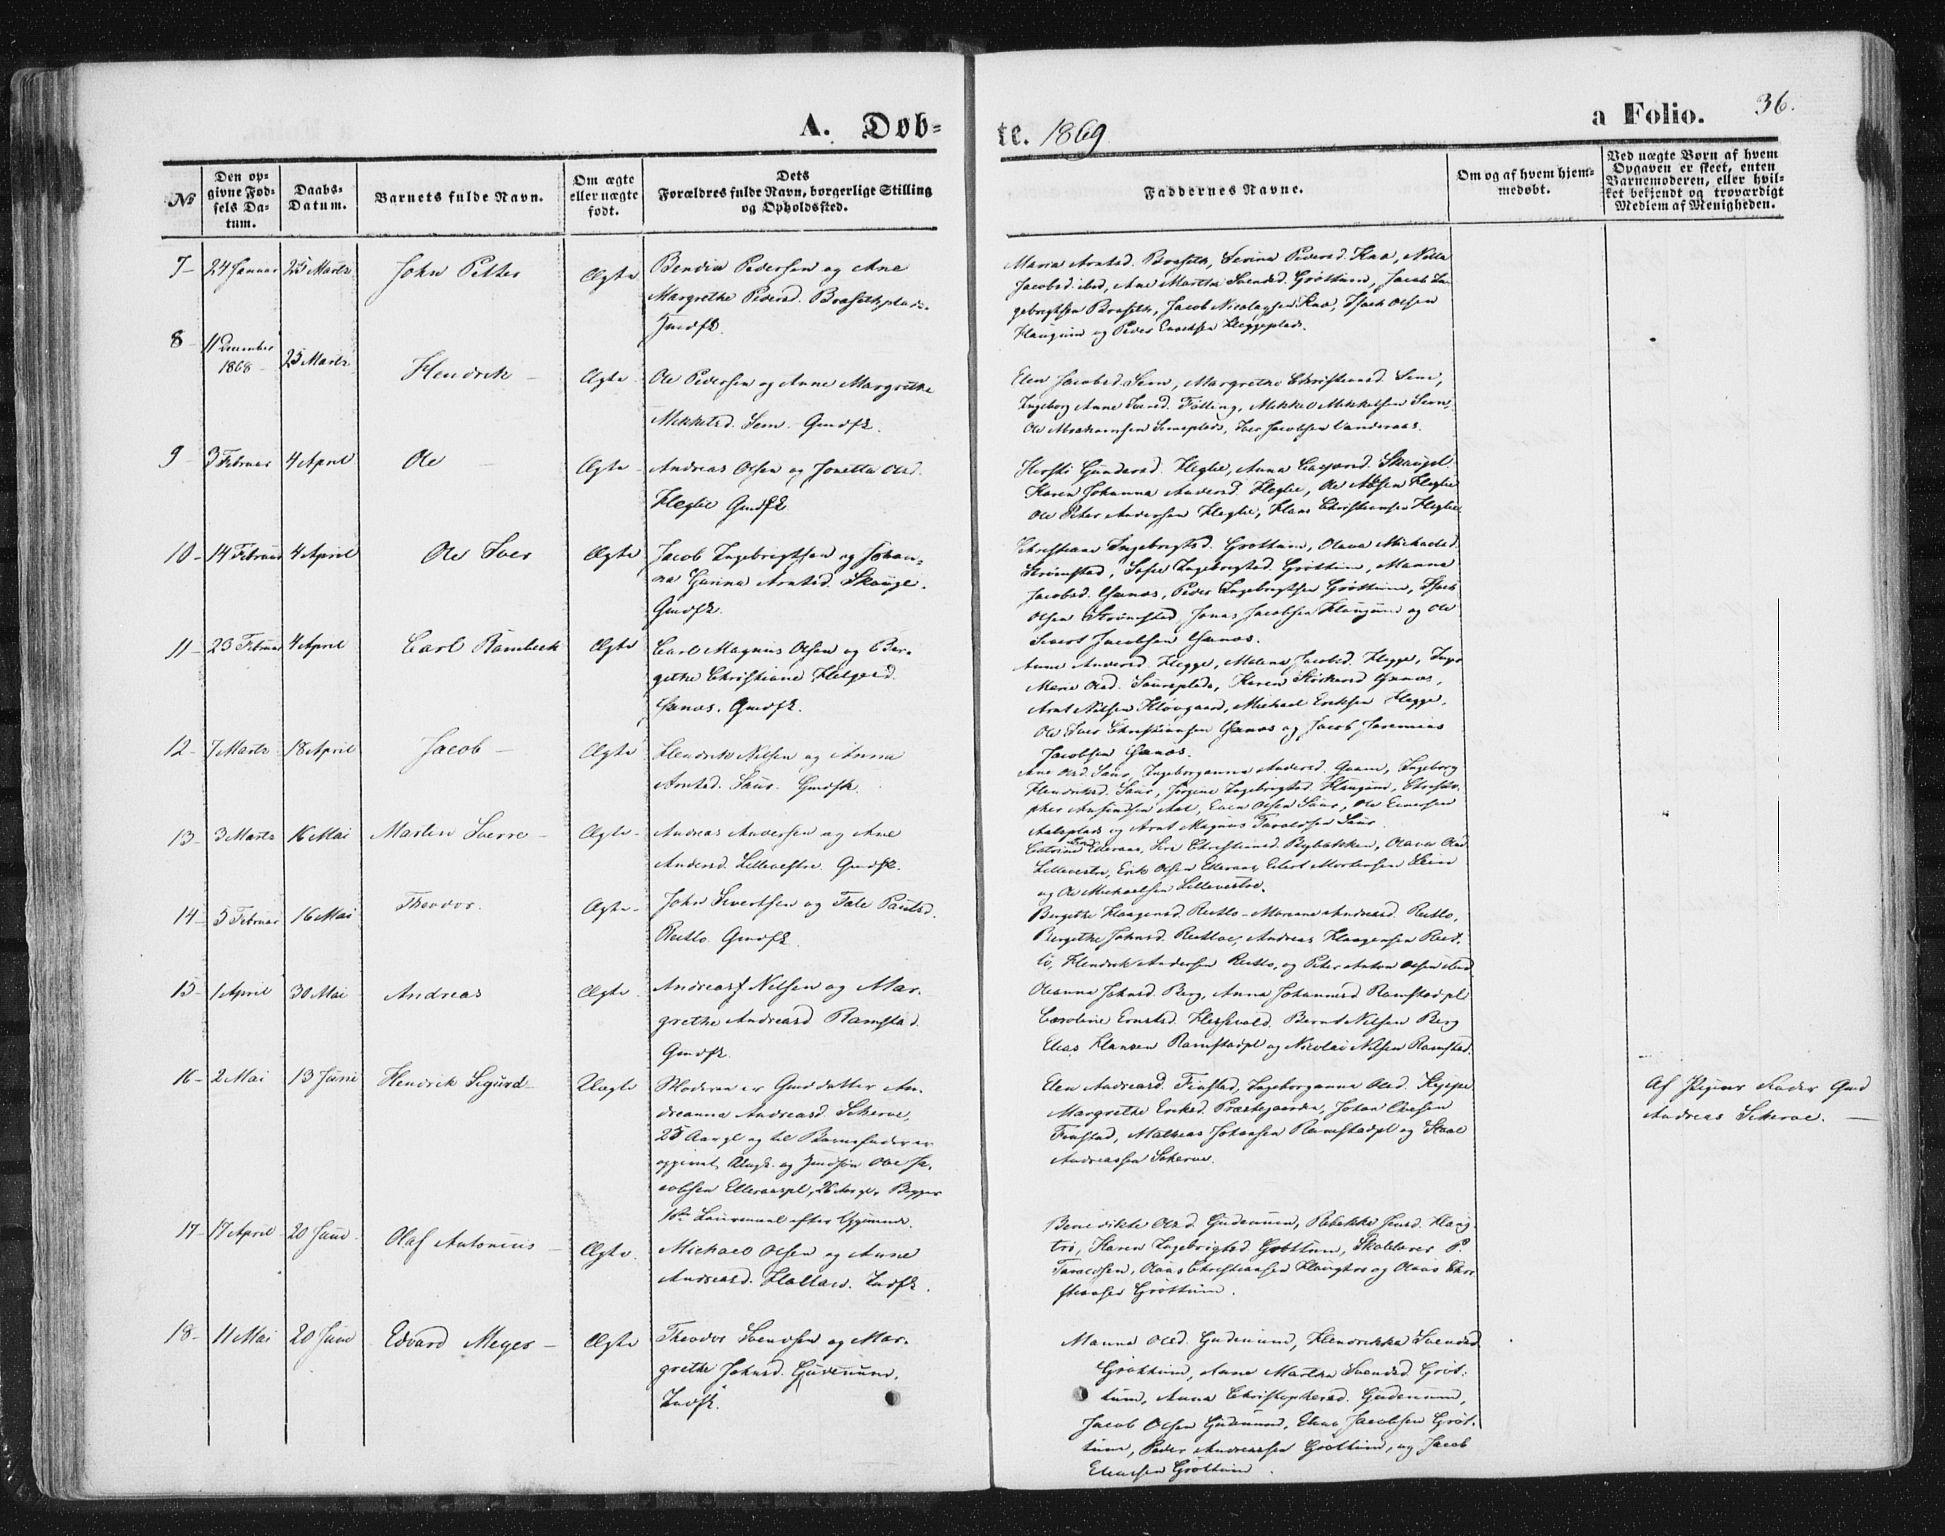 A. Døb=
te. 1869
a Folio. 36.
No
Den op=
givne Fød=
sels Da=
tum.
Daabs=
Datum.
Barnets fulde Navn.
Om ægte
eller uægte
født.
Dets
Forældres fulde Navn, borgerlige Stilling
og Opholdssted.
Faddernes Navne.
Om og af hvem hjem=
medøbt.
Ved uægte Børn af hvem
Opgaven er skeet, enten
Barnemoderen, eller hvil=
ket bekjendt og troværdigt
Medlem af Menigheden.
7 - 24 Januar 25 Marts John Petter Ægte
Bendix Pedersen og Ane
Margrethe Pedersd. Braseth plads.
Indsk.
Maria Arntsd. Braseth, Serina Pedersd. Kaa,
Jacobsd. ibid, Ane Martha Svendsd. Grøttum, Jacob In=
gebrigtsen Braseth, Jacob Nicolaysen Kaa, Isach Olsen
Haugum og Peder Enochsen Heggeplads.
8 - 11 December
1868 25 Marts Hendrik - Ægte
Ole Pedersen og Anne Margrethe
Mikkelsd. Sem. Gmdsk.
Elen Jacobsd. Sem, Margrethe Christiansd. Sem,
Ingeborg Anne Følling, Mikkel Mikkelsen Sem,
Ole Abrahamsen Semsplads, Iver Jacobsen
9 - 3 Februar 4 April Ole - Ægte -
Andreas Olsen og Jonetta Olsd.
Heglie Gmdsk
Kersti Gundersd. Heglie, Anna Skaugel
Karen Johanna Andersd. Heglie, Ole Heglie
Ole Peter Andersen Heglie, Hans Christiansen Heglie
10 - 14 Februar 4 April Ole Iver Ægte
Jacob Ingebrigtsen og Johan=
na Gurina Arntsd. Skauge.
Gmdsk.
Christiane Ingebrigtsd. Grøttum, Olava Michaelsd.
Strømstad, Sofie Ingebrigtsd. Grøttum, Manna
Jacobsd. Peder Ingebrigtsen Grøttum, Isach
Olsen Strømstad, Jonas Jacobsen Haugum og Ole
Sivert Jacobsen
11 - 23 Februar 4 April Carl Rambech Ægte
Carl Magnus Olsen og Ber=
gethe Christiane Helgesd.
Gmdsk.
Anne Andersd. Hegge, Malena Jacobsd. Hegge,
Marie Olsd. Karen
Arnt Nilsen Michael Eriksen Hegge,
Ole Iver Christiansen og Jacob Jeremias
Jacobsen
12 - 7 Marts 18 April Jacob - Ægte
Hendrik Nilsen og Anna
Arntsd. Saur. Gmdsk.
Ane Olsd. Saur, Ingeborganna Andersd. Quam, Ingeborg
Hendriksd. Saur, Jørgine Ingebrigtsd. Haugum, Christo=
pher Even Olsen Saur, Ole
og Arnt Magnus Saur.
13 - 3 Marts 16 Mai Martin Sverre - Ægte -
Andreas Andersen og Ane
Andersd. Lillevestre. Gmdsk.
Cathrine Elleraas, Siri Christiansd. Olava Olsd.
Lillevestre, Erik Olsen Elleraas, Eilert Mortensen
og Ole Michaelsen Lillevestre.
14 - 5 Februar 16 Mai Theodor. Ægte -
John Sivertsen og Tale Paulsd.
Rustlo. Gmdsk.
Bergethe Haagensd. Rustlo - Mariane Andreasd. Rustlo,
Bergethe Johnsd. Andreas Haagensen Rust=
lo, Hendrik Andersen Rustlo, og Peter Anton Olsen ibid
15 - 1 April 30 Mai Andreas Ægte -
Andreas Nilsen og Mar=
grethe Andreasd. Ramstad.
Gmdsk.
Oleanna Johnsd. Berg, Anna Johannesd Ramstadpl
Caroline Ernstsd. Bernt Nilsen Berg
Elias Hansen Ramstadpl og Nicolai Nilsen Ramstad.
16 - 2 Mai 13 Juni Hendrik Sigurd - Uægte
Moderen er Gmd datter An=
dreanna Andreasd. Scherve,
25 Aar gl og til Barnefader er
opgivet Ungk. og Indsøn Ole Ja=
cobsen Elleraaspl, 26 Aar gl. Begges
1ste Leiermaal efter Opgivende.
Elen Andreasd. Finstad, Ingeborganna Olsd.
Margrethe Eriksd. Præstegaarden, Johan
Finstad, Mathias Johansen Ramstadpl og
Andreassen Scherve.
Af Pigens Fader Gmd
Andreas Scherve. -
17 - 17 April 20 Juni Olaf Antonius - Ægte.
Michael Olsen og Anne
Andreasd. Indsk.
Benedikte Olsd. Gudemum, Rebekka Haug=
trø, Karen Ingebrigtsd. Grøttum, Skolelærer P.
Olaus Christiansen Haugtrø og Olaus Chri=
stiansen Grøttum.
18 - 11 Mai 20 Juni Edvard Meyer - Ægte
Theodor Svendsen og Mar=
grethe Johnsd. Gudemum.
Indsk.
Manna Olsd. Gudemum, Hendrikka Svendsd.
Grøttum, Anne Martha Svendsd. Grøt=
tum, Anna Christophersd. Gudemum,
Jacob Olsen Gudemum, Elias Jacobsen Grøt=
tum, Peder Andreassen Grøttum, og Jacob
Eliassen Grøttum.